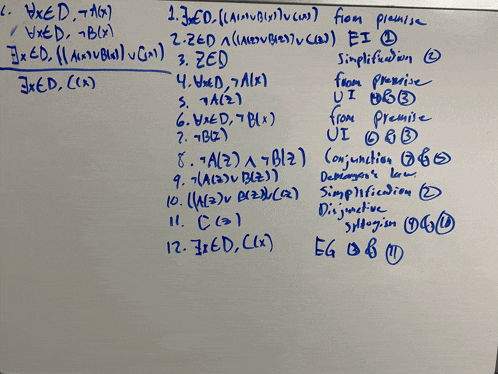 c. ∀x∈D, ¬A(x)
∀x∈D, ¬B(x)
∃x∈D, ((A(x)∨B(x))∨C(x))
∃x∈D, C(x)
1. ∃x∈D, ((A(x)∨B(x))∨C(x)) from premise
2. Z∈D ∧ ((A(z)∨B(z))∨C(z)) EI ①
3. Z∈D Simplification ②
4. ∀x∈D, ¬A(x) from premise
5. ¬A(z) UI ④&③
6. ∀x∈D, ¬B(x) from premise
7. ¬B(z) UI ⑥&③
8. ¬A(z) ∧ ¬B(z) Conjunction ⑦&⑤
9. ¬(A(z)∨B(z)) Demorgan's law
10. ((A(z)∨B(z))∨C(z) Simplification ②
11. C(z) Disjunctive syllogism ⑨&⑩
12. ∃x∈D, C(x) EG ③&⑪